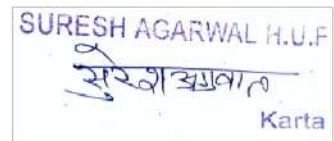 SURESH AGARWAL H.U.F
सुरेश अग्रवाल
Karta